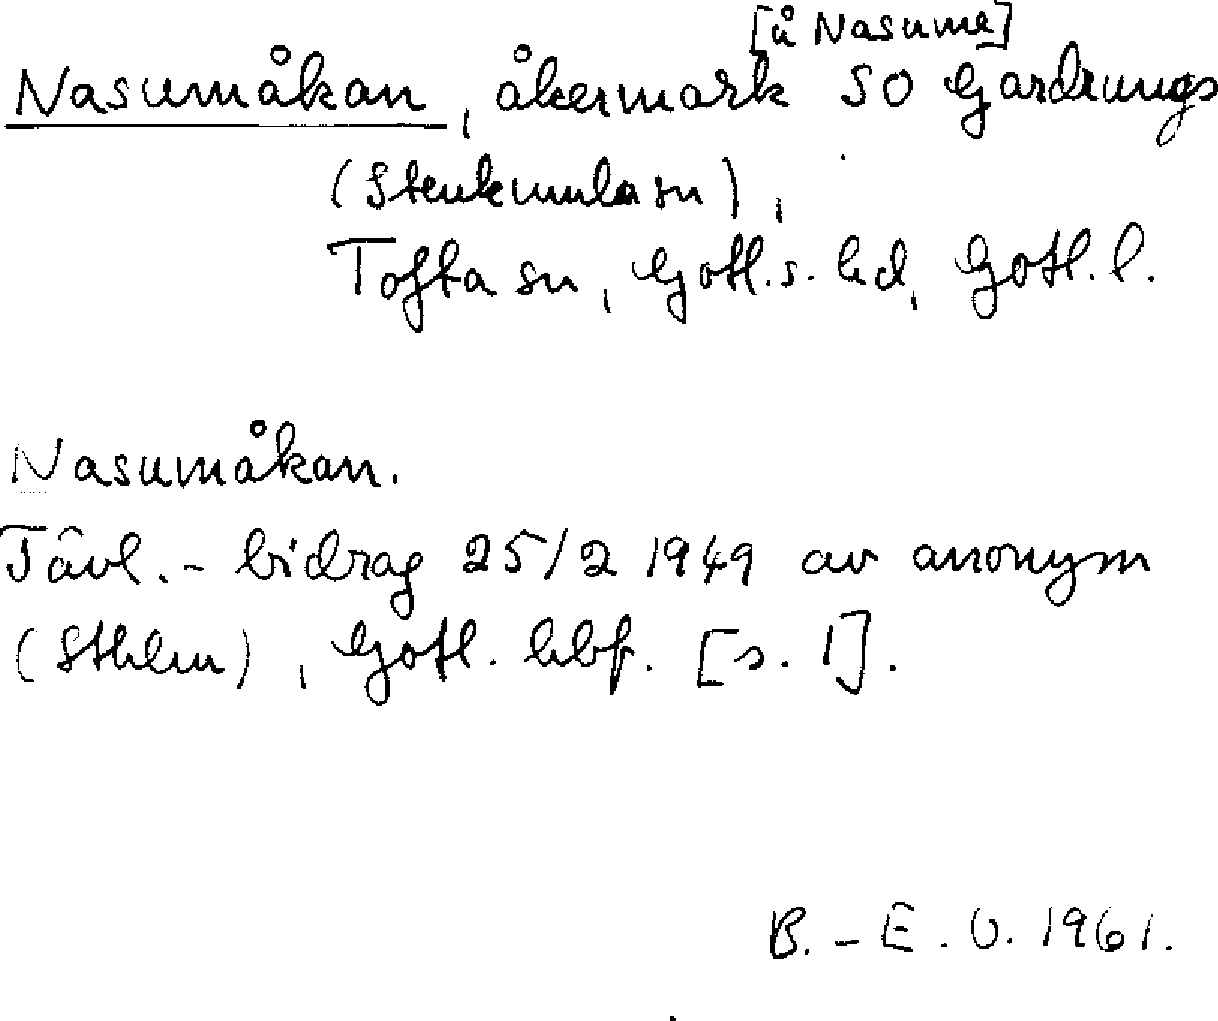 [å Nasume]
Nasumåkan, åkermark SO Gardrungs
(Stenkumla sn),
Tofta sn, Gotl.s. hd, Gotl. l.
Nasumåkan.
Tävl.- bidrag 25/2 1949 av anonym
(Sthlm), Gotl. hbf. [s. 1].
B.-E. O. 1961.